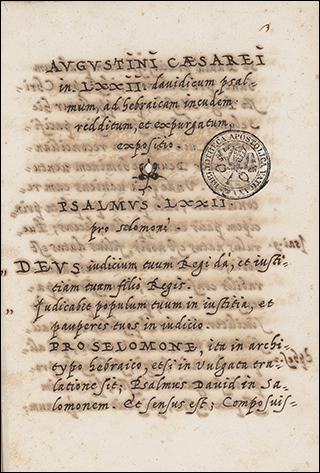 3
AVGVSTINI CÆSAREI
in LXXII. davidicum psal-
mum, ad hebraicam incudem
redditum, et expurgatum
expositio.
BIBLIOTHECA APOSTOLICA VATICANA
PSALMVS. LXXII
pro selomoni.
DEVS iudicium tuum Regi da, et iusti-
tiam tuam filio Regis.
Iudicabit populum tuum in iustitia, et
pauperes tuos in iudicio.
PRO SELOMONE, ita in archi-
typo hebraico, etsi in Vulgata tra-
latione sit; Psalmus David in Sa-
lomonem. Et sensus est; Composuis-